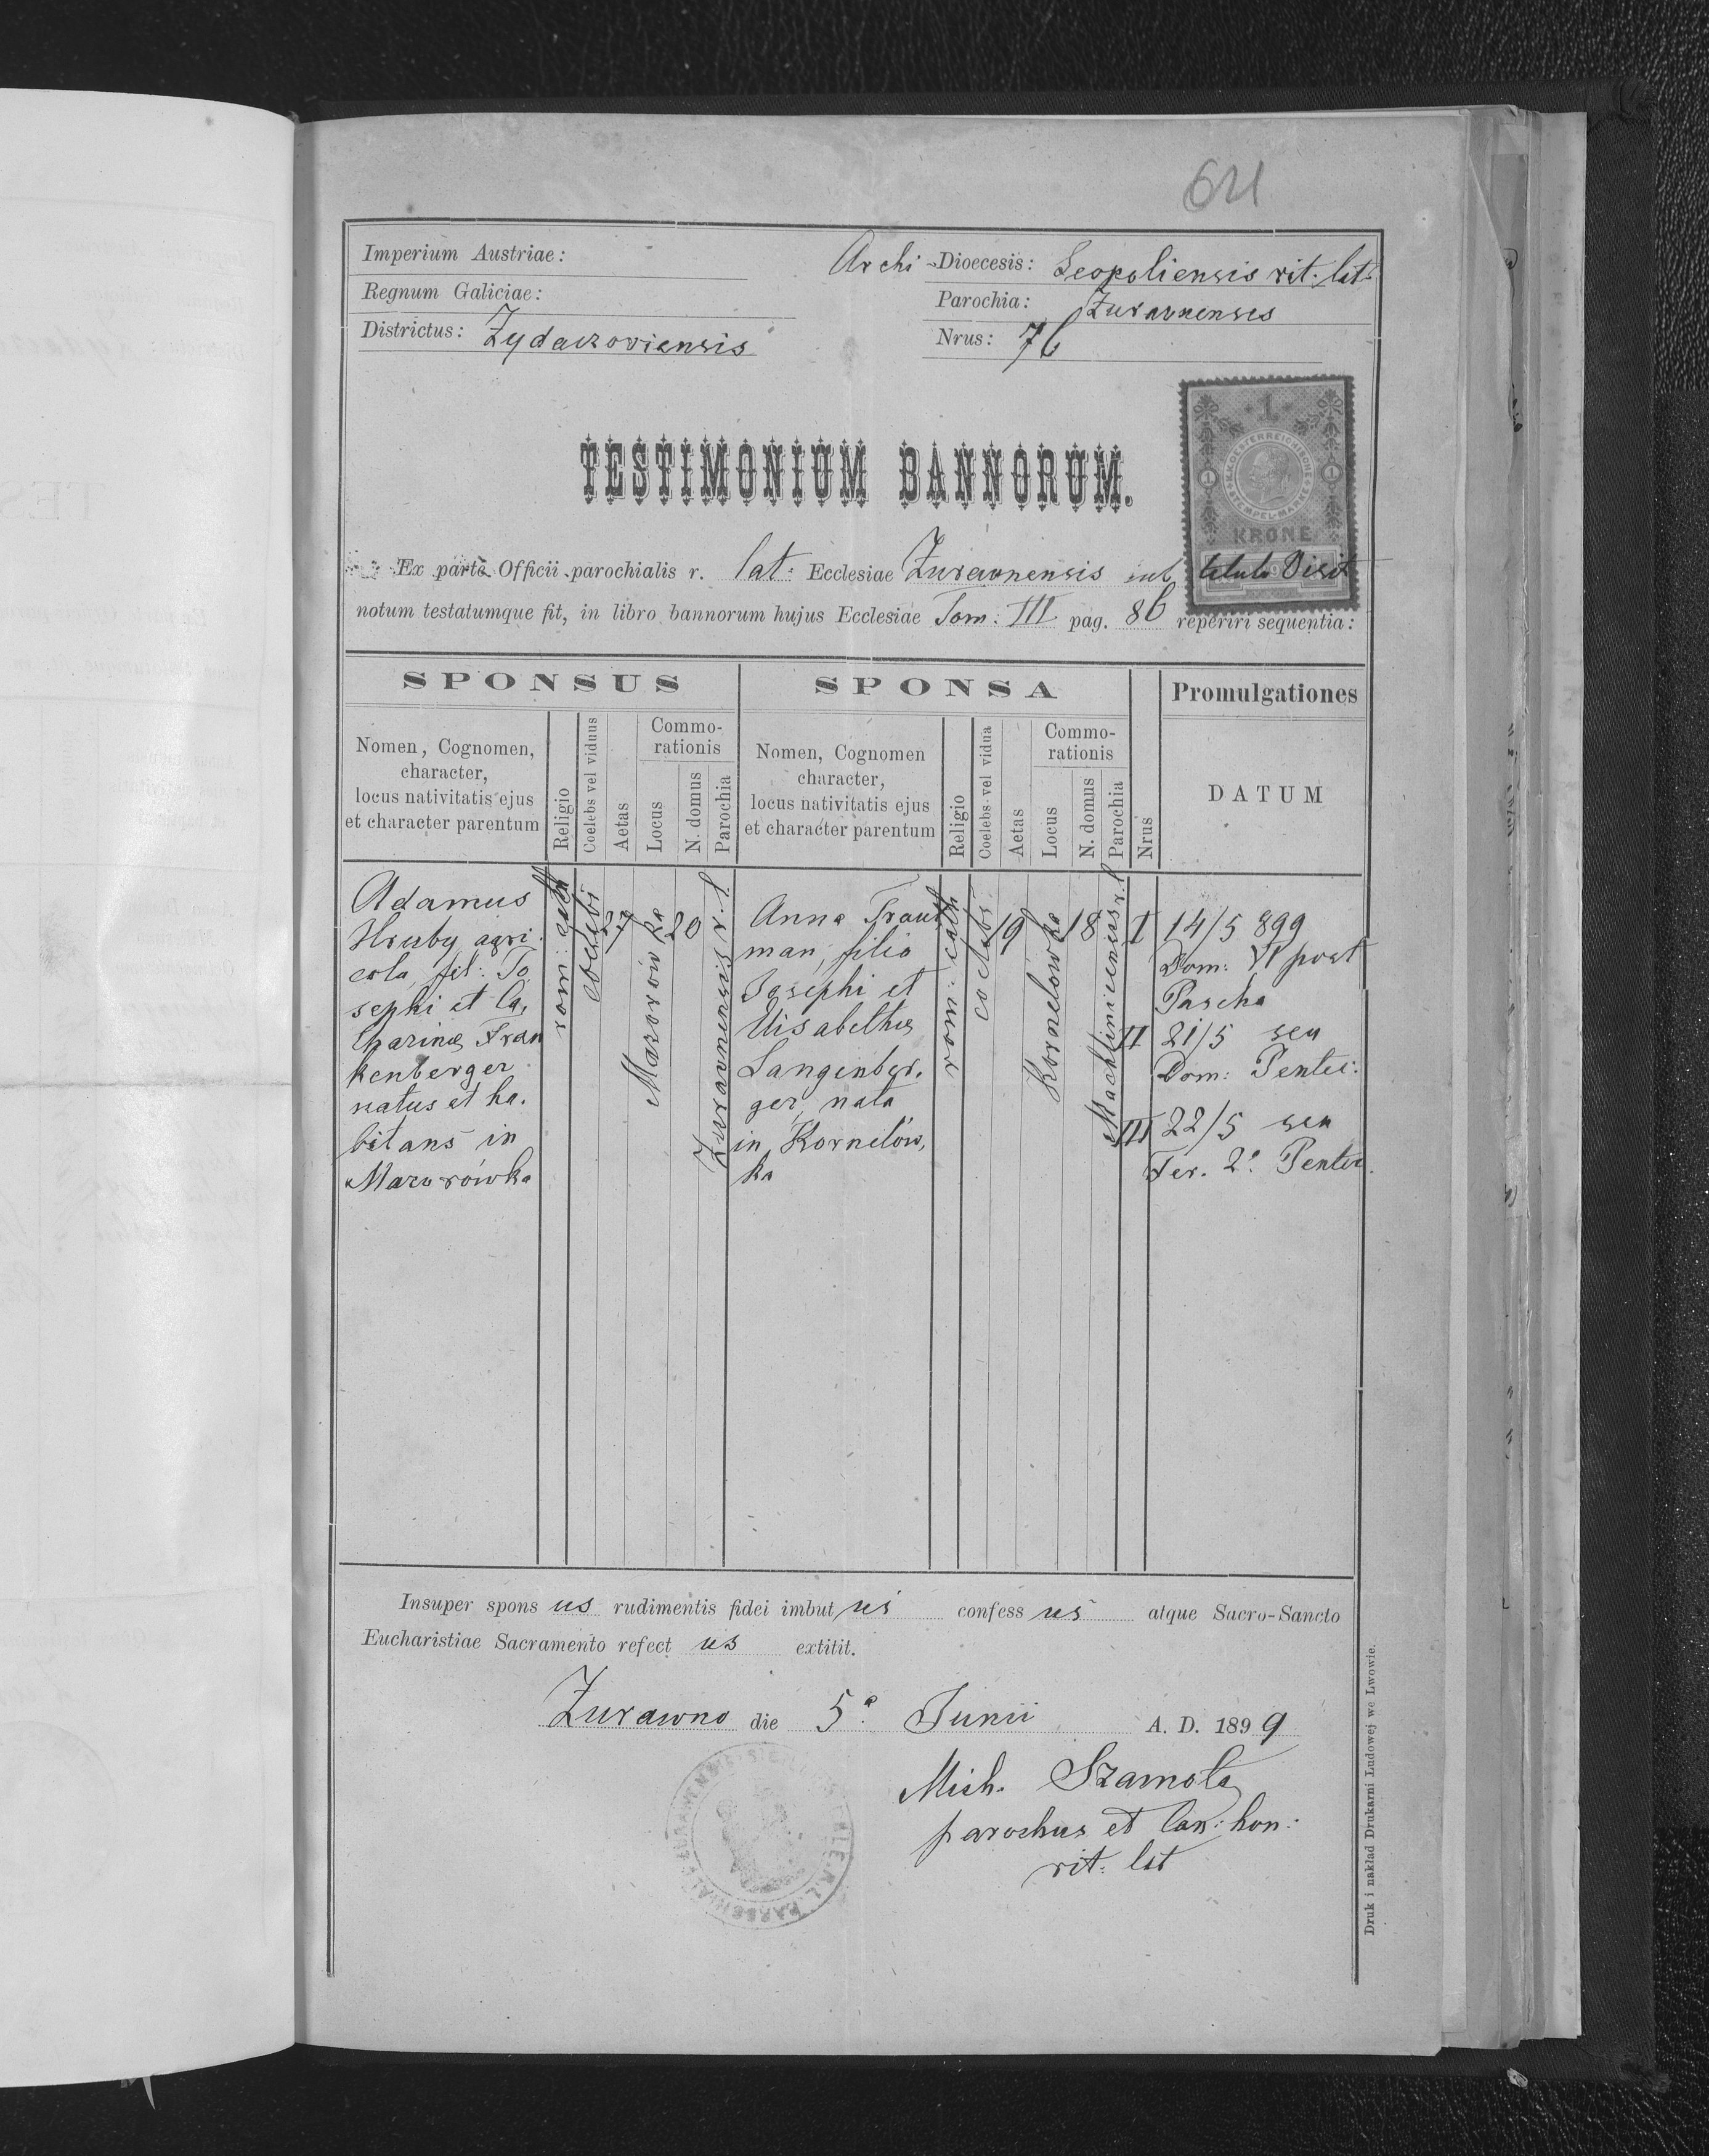 621
Imperium Austriae:
Regnum Galiciae:
Districtus: Zydaczoviensis
Archi-Dioecesis: Leopoliensis rit: lat:
Parochia: Zuravnensis
Nrus: 76
1
OESTERREICHISCHE
STEMPEL-MARKE
1 1
KRONE
TESTIMONIUM BANNORUM.
Ex parte Officii parochialis r. lat: Ecclesiae Zuravnensis sub titulo Visit
notum testatumque fit, in libro bannorum hujus Ecclesiae Tom: III pag. 86 reperiri sequentia:
SPONSUS
Nomen, Cognomen,
character,
locus nativitatis ejus
et character parentum
Religio
Coelebs vel viduus
Aetas
Commo-
rationis
Locus
N. domus
Parochia
SPONSA
Nomen, Cognomen
character,
locus nativitatis ejus
et character parentum
Religio
Coelebs vel vidua
Aetas
Commo-
rationis
Locus
N. domus
Parochia
Nrus
Promulgationes
DATUM
Adamus
Hruby agri
cola, fil: Jo
sephi et Ca,
tharinæ Fran
kenberger
natus et ha.
bitans in
Mazurówka
rom: cath
coelebs
27
Mazurówka
20
Zuravnensis r. l.
Anna Traut
man, filia
Josephi et
Elisabethæ
Langenber.
ger, nata
in Kornelów,
ka
rom: cath
coelebs
19
Kornelówka
18
Machliniecensis r. l
I 14/5 899
Dom: VI post
Pascha
II 21/5 seu
Dom: Pentec:
III 22/5 seu
Fer. 2ª Pentec.
Insuper spons us rudimentis fidei imbut us confess us atque Sacro-Sancto
Eucharistiae Sacramento refect us extitit.
Zurawno die 5ª Junii A. D. 1899
Mich. Szamota
parochus et Can: hon:
rit: lat
Druk i nakład Drukarni Ludowej we Lwowie.